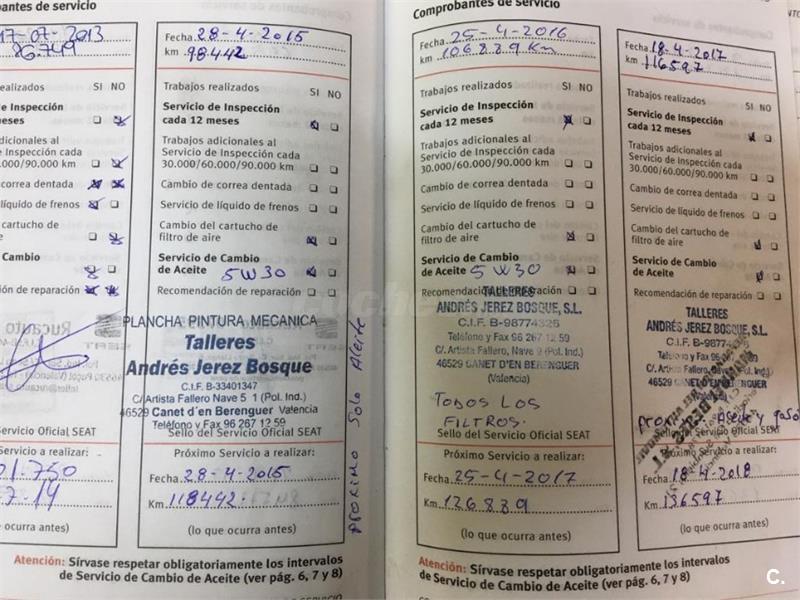 antes de servicio
17-07-2013
86.749
SI NO
o de Inspección
meses
adicionales al
de Inspección cada
.000/90.000 km
de correa dentada
líquido de frenos
del cartucho de
re
de Cambio
ón de reparación
ervicio Oficial SEAT
ervicio a realizar:
01.750
7-14
que ocurra antes)
Fecha 28-4-2015
km 98442
Trabajos realizados SI NO
Servicio de Inspección
cada 12 meses
Trabajos adicionales al
Servicio de Inspección cada
30.000/60.000/90.000 km
Cambio de correa dentada
Servicio de líquido de frenos
Cambio del cartucho de
filtro de aire
Servicio de Cambio
de Aceite 5W30
Recomendación de reparación
PLANCHA PINTURA MECANICA
Talleres
Andrés Jerez Bosque
C.I.F. B-33401347
C/Artista Fallero Nave 5 1 (Pol. Ind.)
46529 Canet d'en Berenguer Valencia
Teléfono y Fax 96 267 12 59
Sello del Servicio Oficial SEAT
Próximo Servicio a realizar:
Fecha 28-4-2015
Km 118442
(lo que ocurra antes)
PROXIMO Solo Aceite
Atención: Sírvase respetar obligatoriamente los intervalos
de Servicio de Cambio de Aceite (ver pág. 6, 7 y 8)
Comprobantes de servicio
Fecha 25-4-2016
km 106839 Km
Trabajos realizados SI NO
Servicio de Inspección
cada 12 meses
Trabajos adicionales al
Servicio de Inspección cada
30.000/60.000/90.000 km
Cambio de correa dentada
Servicio de líquido de frenos
Cambio del cartucho de
filtro de aire
Servicio de Cambio
de Aceite 5W30
Recomendación de reparación
TALLERES
ANDRÉS JEREZ BOSQUE, S.L.
C.I.F. B-98774326
Teléfono y Fax 96 267 12 59
C/. Artista Fallero, Nave 9 (Pol. Ind.)
46529 CANET D'EN BERENGUER
(Valencia)
TODOS LOS
FILTROS.
Sello del Servicio Oficial SEAT
Próximo Servicio a realizar:
Fecha 25-4-2017
Km 126839
(lo que ocurra antes)
Fecha 18-4-2017
km 116597
Trabajos realizados SI NO
Servicio de Inspección
cada 12 meses
Trabajos adicionales al
Servicio de Inspección cada
30.000/60.000/90.000 km
Cambio de correa dentada
Servicio de líquido de frenos
Cambio del cartucho de
filtro de aire
Servicio de Cambio
de Aceite
Recomendación de reparación
TALLERES
ANDRÉS JEREZ BOSQUE, S.L.
C.I.F. B-9877
Teléfono y Fax 96
C/. Artista Fallero, Nave
46529 CANET D'EN BERENGUER
Aceite y
Servicio Oficial SEAT
Próximo Servicio a realizar:
Fecha 18-4-2018
Km 136597
(lo que ocurra antes)
Atención: Sírvase respetar obligatoriamente los intervalos
de Servicio de Cambio de Aceite (ver pág. 6, 7 y 8)
C.